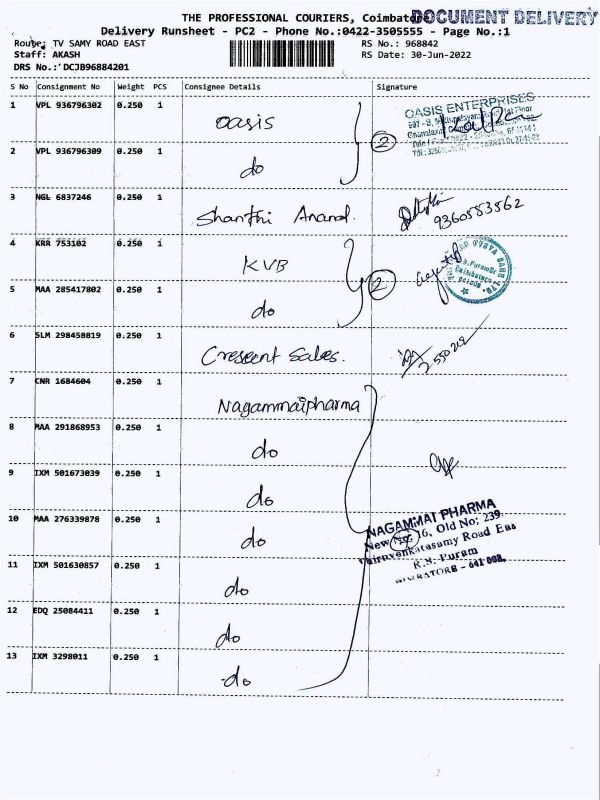 THE PROFESSIONAL COURIERS, Coimbatore
DOCUMENT DELIVERY
Delivery Runsheet - PC2 - Phone No.:0422-3505555 - Page No.:1
Route: TV SAMY ROAD EAST
RS No.: 968842
Staff: AKASH
RS Date: 30-Jun-2022
DRS No.: DCJB96884201
S No Consignment No Weight PCS Consignee Details Signature
1 VPL 936796302 0.250 1 Oasis
OASIS ENTERPRISES
2
2 VPL 936796309 0.250 1 do
3 NGL 6837246 0.250 1 Shanthi Anand.
9360583562
4 KRR 753102 0.250 1 KVB
2
5 MAA 285417802 0.250 1 do
6 SLM 298458819 0.250 1 Crescent Sales.
7 CNR 1684604 0.250 1 Nagammaipharma
8 MAA 291868953 0.250 1 do
9 IXM 501673039 0.250 1 do
10 MAA 276339878 0.250 1 do
NAGAMMAI PHARMA
New No: 16, Old No: 239,
Tiruvenkatasamy Road East
R.S. Puram
COIMBATORE - 641 002.
11 IXM 501630857 0.250 1 do
12 EDQ 25084411 0.250 1 do
13 IXM 3298011 0.250 1 do